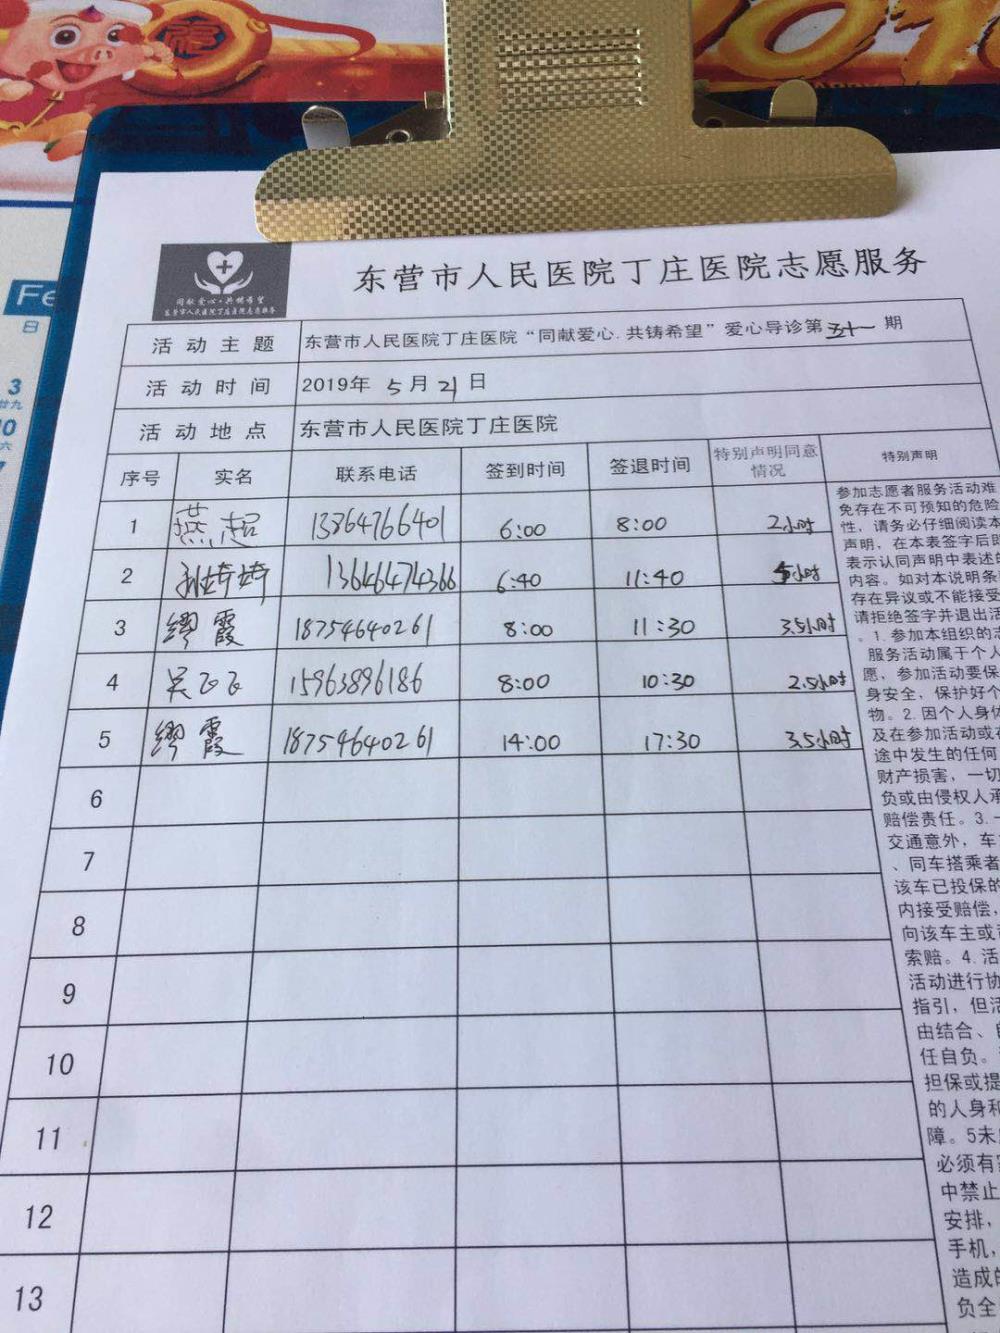 2019
Fe
日
3
廿九
10
六
同献爱心·共铸希望
东营市人民医院丁庄医院志愿服务
东营市人民医院丁庄医院志愿服务
活动主题 东营市人民医院丁庄医院“同献爱心.共铸希望”爱心导诊第五十一期
活动时间 2019年 5月21日
活动地点 东营市人民医院丁庄医院
序号 实名 联系电话 签到时间 签退时间 特别声明同意情况 特别声明
1 燕超 13364766401 6:00 8:00 2小时
2 孙婷婷 13646474366 6:40 11:40 5小时
3 缪霞 18754640261 8:00 11:30 3.5小时
4 吴飞飞 15963896186 8:00 10:30 2.5小时
5 缪霞 18754640261 14:00 17:30 3.5小时
6
7
8
9
10
11
12
13
参加志愿者服务活动难
免存在不可预知的危险
性，请务必仔细阅读本
声明，在本表签字后即
表示认同声明中表述的
内容。如对本说明条
存在异议或不能接受
请拒绝签字并退出活
。1.参加本组织的志
服务活动属于个人
愿，参加活动要保
身安全，保护好个
物。2.因个人身体
及在参加活动或在
途中发生的任何
财产损害，一切
负或由侵权人承
赔偿责任。3.一
交通意外，车
、同车搭乘者
该车已投保的
内接受赔偿，
向该车主或
索赔。4.活
活动进行协
指引，但活
由结合、自
任自负。
担保或提
的人身和
障。5未
必须有
中禁止
安排，
手机，
造成的
负全